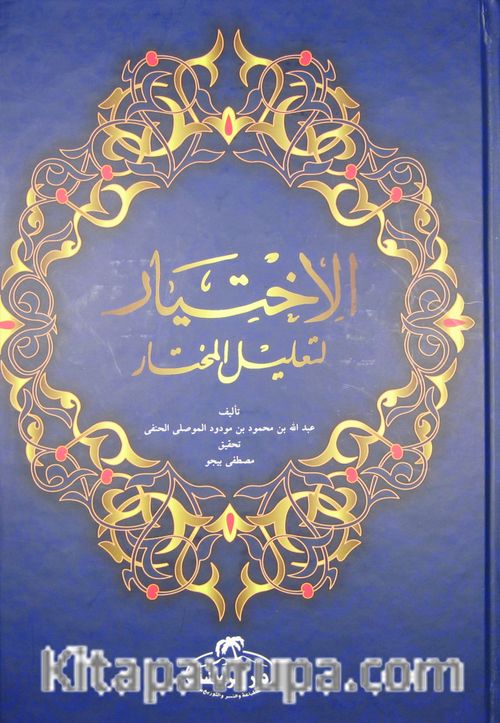 الإختيار
لتعليل المختار
تأليف
عبد الله بن محمود بن مودود الموصلى الحنفى
تحقيق
مصطفى بيجو
Kitapavrupa.com